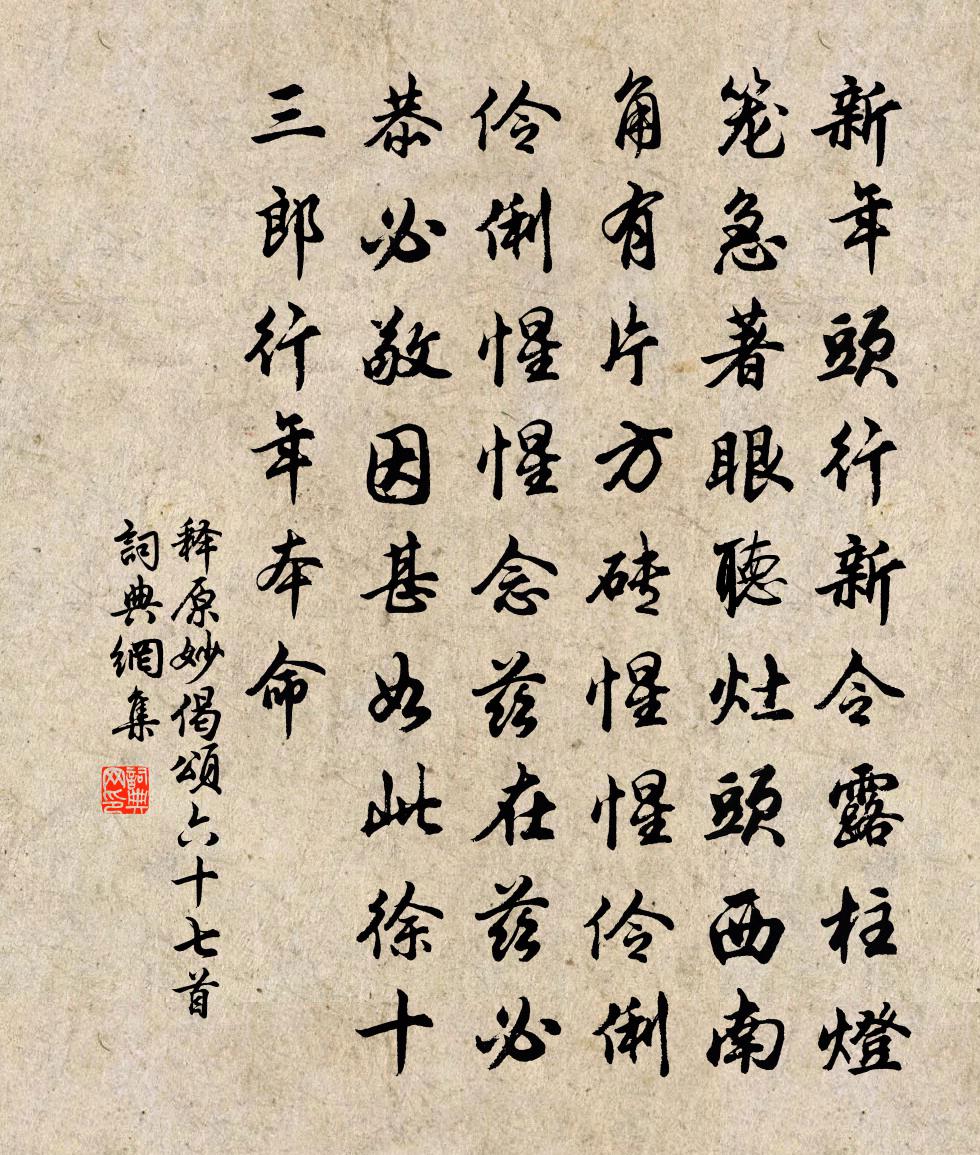 新年頭行新令露柱燈
笼急著眼聽灶頭西南
角有片方磚惺惺伶俐
伶俐惺惺念茲在茲必
恭必敬因甚如此徐十
三郎行年本命
释原妙偈頌六十七首
詞典網集
詞典网印